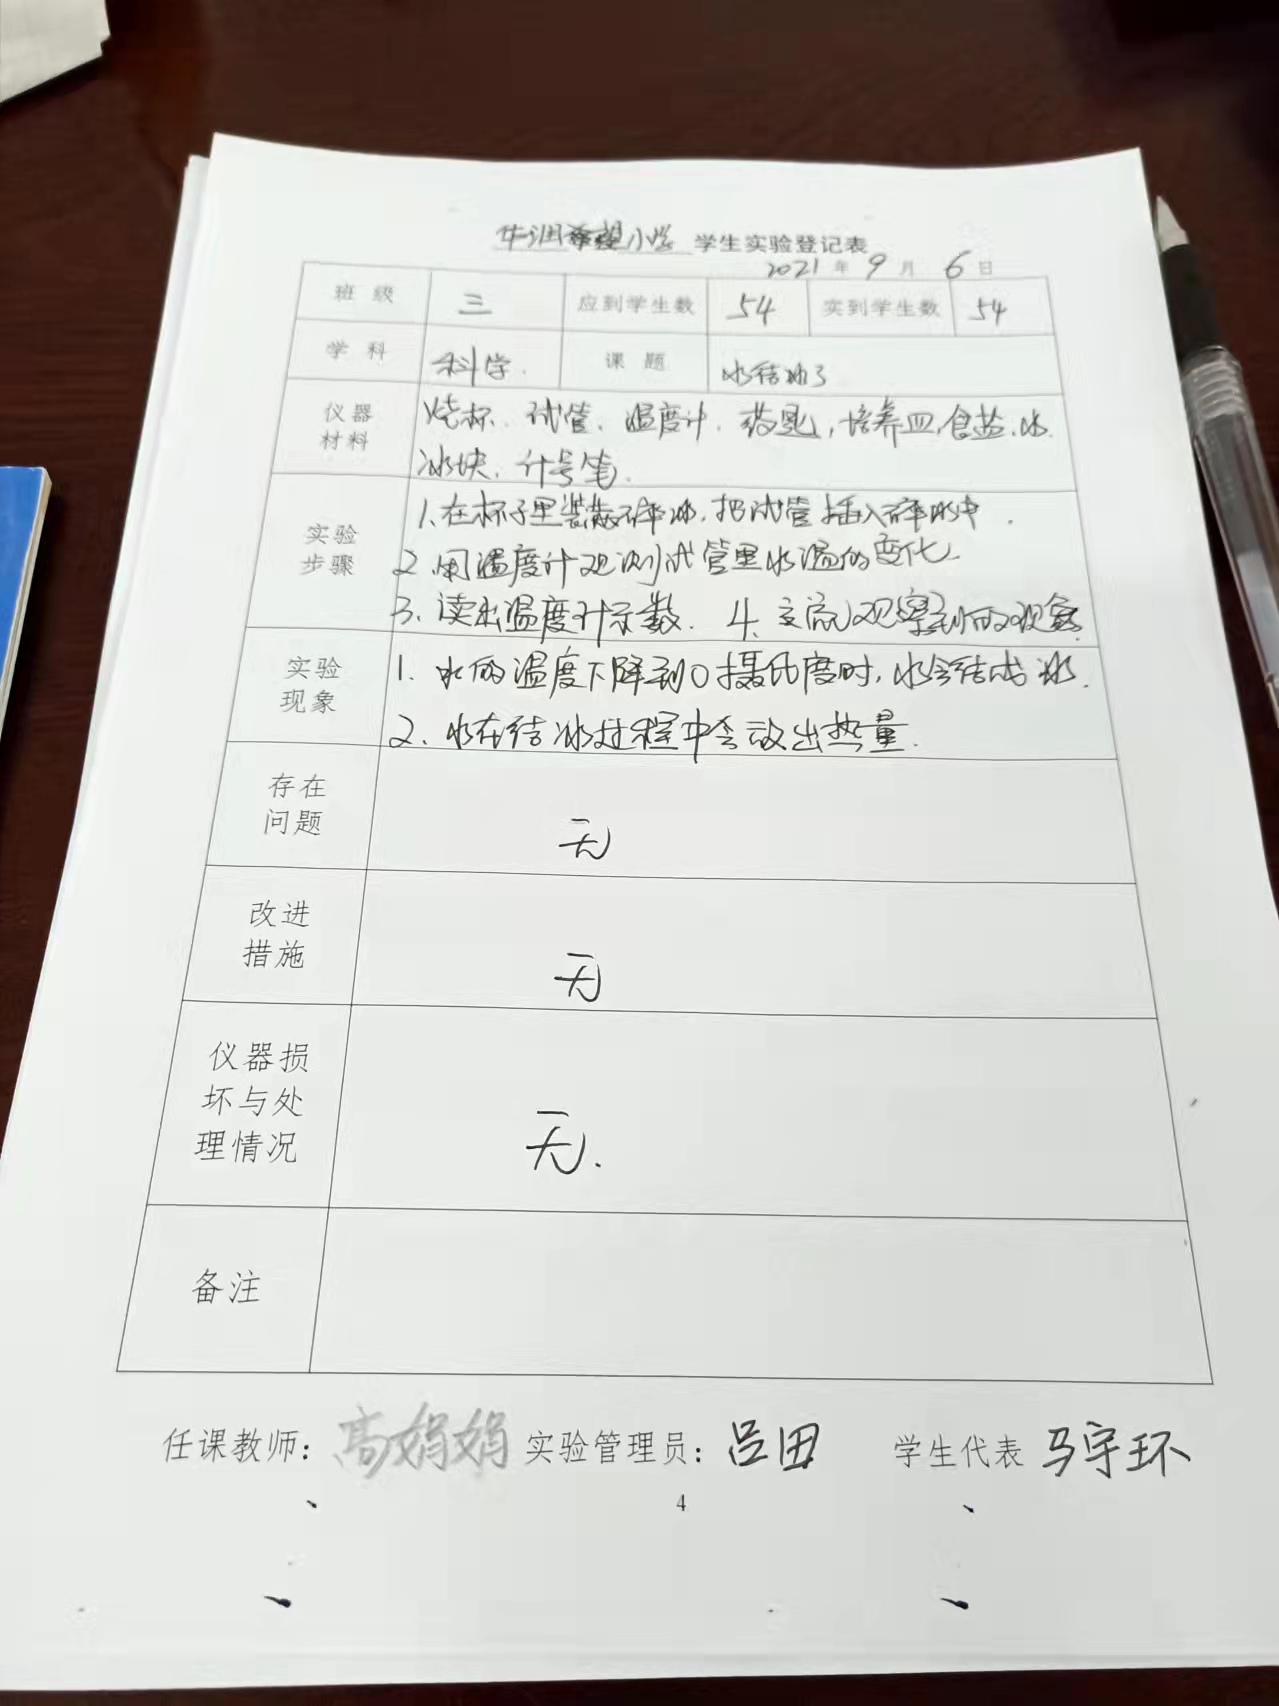 华润希望小学 学生实验登记表
2021 年 9 月 6 日
班 级 三 应到学生数 54 实到学生数 54
学 科 科学. 课 题 水结冰了
仪器材料 烧杯、试管、温度计、药匙,培养皿,食盐.水.
冰块、计号笔.
实验步骤 1.在杯子里装碎冰,把试管插入碎冰中.
2.用温度计观测试管里水温的变化
3.读出温度计示数. 4.交流观察到的现象.
实验现象 1.水的温度下降到0摄氏度时,水会结成冰.
2.水在结冰过程中会放出热量.
存在问题 无
改进措施 无
仪器损坏与处理情况 无.
备注
任课教师: 高娟娟 实验管理员: 吕田 学生代表 马宇环
4